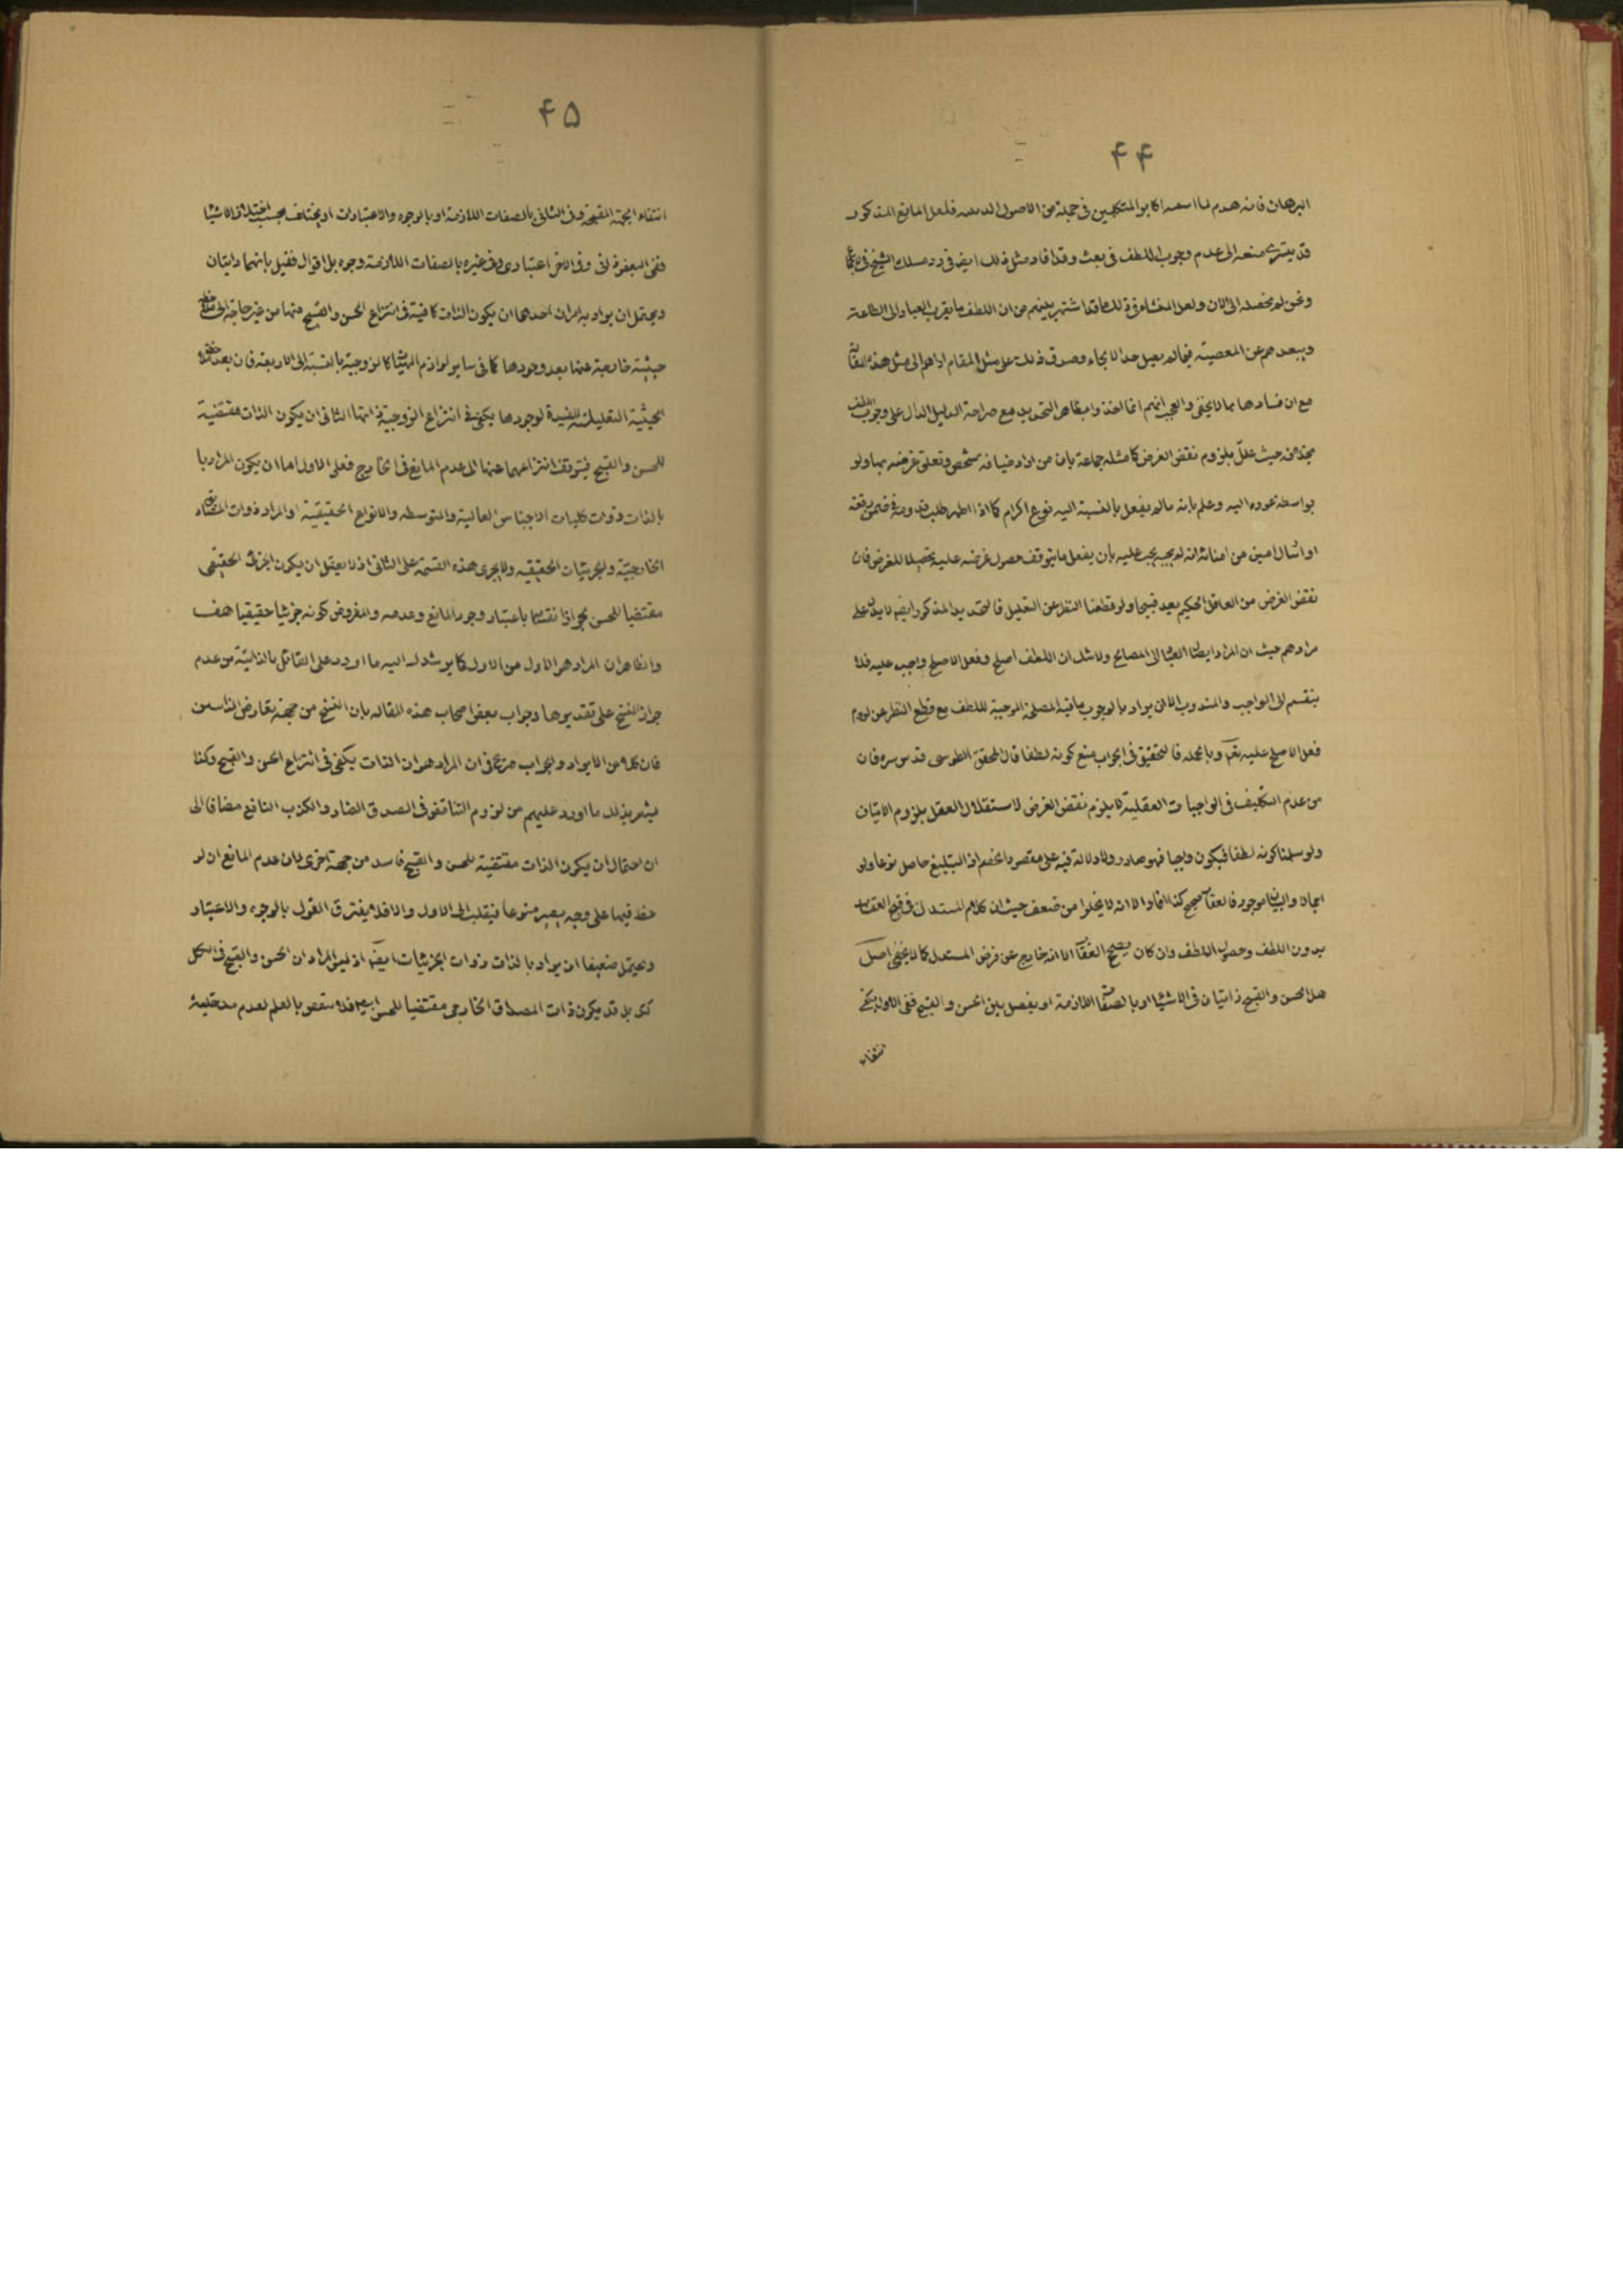 ۴۴
البرهان فانه هدم لما اسسه اكابر المتكلمين فى جملة من الاصول الدينيه فلعل المانع المذكور
قد يسرى منعه الى عدم وجوب اللطف فى بعث وقد افاد مثل ذلك ايضا فى رد مسلك الشيخ فى
ونحن لم نحصله الى الان ولعل المنشاء فى ذلك ما قد اشتهر بينهم من ان اللطف ما يقرب العباد الى الطاعة
ويبعدهم عن المعصية فيما لم يصل حد الالجاء وصدق ذلك على مثل المقام اداهم الى مثل هذه المقالة
مع ان فسادها مما لا يخفى والعجب انهم اخذوا بظاهر التحديد مع صراحة الدليل الدال على وجوب اللطف
بخلافه حيث علل بلزوم نقض الغرض كما مثله جماعة بان من اراد ضيافة شخص وتعلق غرضه بها ولو
بواسطة عوده اليه وعلم بانه ما لم يفعل بالنسبة اليه نوع اكرام كما اذا اظهر طلب قدومه فى ضمن رقعة
او ارسال امين من امنائه لم يجبه يجب عليه بان يفعل ما يتوقف حصول غرضه عليه تحصيلا للغرض فان
نقض الغرض من العاقل الحكيم يعد قبيحا ولو قطعنا النظر عن التعليل فالتحديد المذكور ايضا لا يدل على
مرادهم حيث ان المراد ايصال العباد الى المصالح ولا شك ان اللطف اصلح وفعل الاصلح واجب عليه فلا
ينقسم الى الواجب والمندوب الا ان يراد بالوجوب ما فيه المصلحة الموجبة للطف مع قطع النظر عن لزوم
فعل الاصلح عليه نعم وبالجمله فالتحقيق فى الجواب منع كونه لطفا قال المحقق الطوسى قدس سره فان
من عدم التكليف فى الواجبات العقلية لا يلزم نقض الغرض لاستقلال العقل بلزوم الاتيان
ولو سلمنا كونه لطفا فيكون واجبا فهو صادر ولا دلالة فيه على مقصود الخصم اذ التبليغ حاصل نوعا ولو
اجمالا والبيان موجود فالعقاب صحيح كذا افاد الا انه لا يخلو من ضعف حيث ان كلام المستدل فى قبح العقاب
بدون اللطف وحصول اللطف وان كان يصح العقاب الا انه خارج عن فرض المستدل كما لا يخفى اصل
هل الحسن والقبح ذاتيان فى الاشياء او بالصفات اللازمة او يفصل بين الحسن والقبح ففى الاول يكفى
انتفاء
۴۵
انتفاء الجهة المقبحة وفى الثانى بالصفات اللازمة او بالوجوه والاعتبارات او يختلف بحسب اختلاف الاشياء
ففى البعض ذاتى وفى الاخر اعتبارى وفى غيره بالصفات اللازمة وجوه بل اقوال فقيل بانهما ذاتيان
ويحتمل ان يراد به امران احدهما ان يكون الذات كافية فى انتزاع الحسن والقبح منها من غير حاجة الى ملاحظة
حيثية خارجة عنها بعد وجودها كما فى ساير لوازم الماهيات كالزوجية بالنسبة الى الاربعة فان بعد ملاحظة
الحيثية التعليلية المفيدة لوجودها يكفى فى انتزاع الزوجية ذاتها الثانى ان يكون الذات مقتضية
للحسن والقبح فيتوقف انتزاعهما عنها الى عدم المانع فى الخارج فعلى الاول اما ان يكون المراد با
بالذات ذوات كليات الاجناس العالية والمتوسطه والانواع الحقيقية او المراد ذوات
الخارجية والجزئيات الحقيقيه ولا يجرى هذه القسمة على الثانى اذ لا يعقل ان يكون الجزئى الحقيقى
مقتضيا للحسن لجواز انقسامها باعتبار وجود المانع وعدمه والمفروض كونه جزئيا حقيقيا هف
والظاهر ان المراد هو الاول من الاول كما يرشدك اليه ما اورد على القائل بالذاتية من عدم
جواز النسخ على تقديرها وجواب بعض اصحاب هذه المقاله بان النسخ من جهة تعارض
فان كلا من الايراد والجواب صريح فى ان المراد هو ان الذات يكفى فى انتزاع الحسن والقبح وكذا
يشعر بذلك ما اورد عليهم من لزوم التناقض فى الصدق الضار والكذب النافع مضافا الى
ان احتمال ان يكون الذات مقتضية للحسن والقبح فاسد من جهة اخرى لان عدم المانع ان لو
حظ فيها على وجه يصير منوعا فينقلب الى الاول والا فلا يفترق القول بالوجوه والاعتبار
ويحتمل ضعيفا ان يراد بالذات ذوات الجزئيات ايضا اذ ليس المراد ان الحسن والقبح فى الكل
كلى بل قد يكون ذات المصداق الخارجى مقتضيا للحسن فلا ينتقض بالعلم لعدم مدخلية